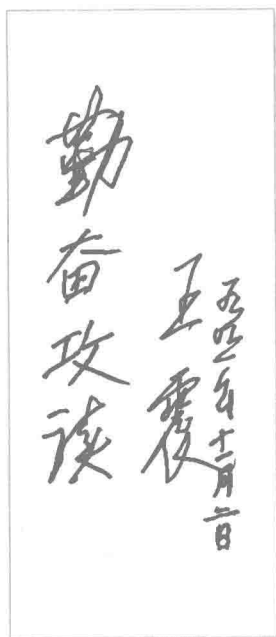 勤奋攻读
王震
一九九一年十一月二日